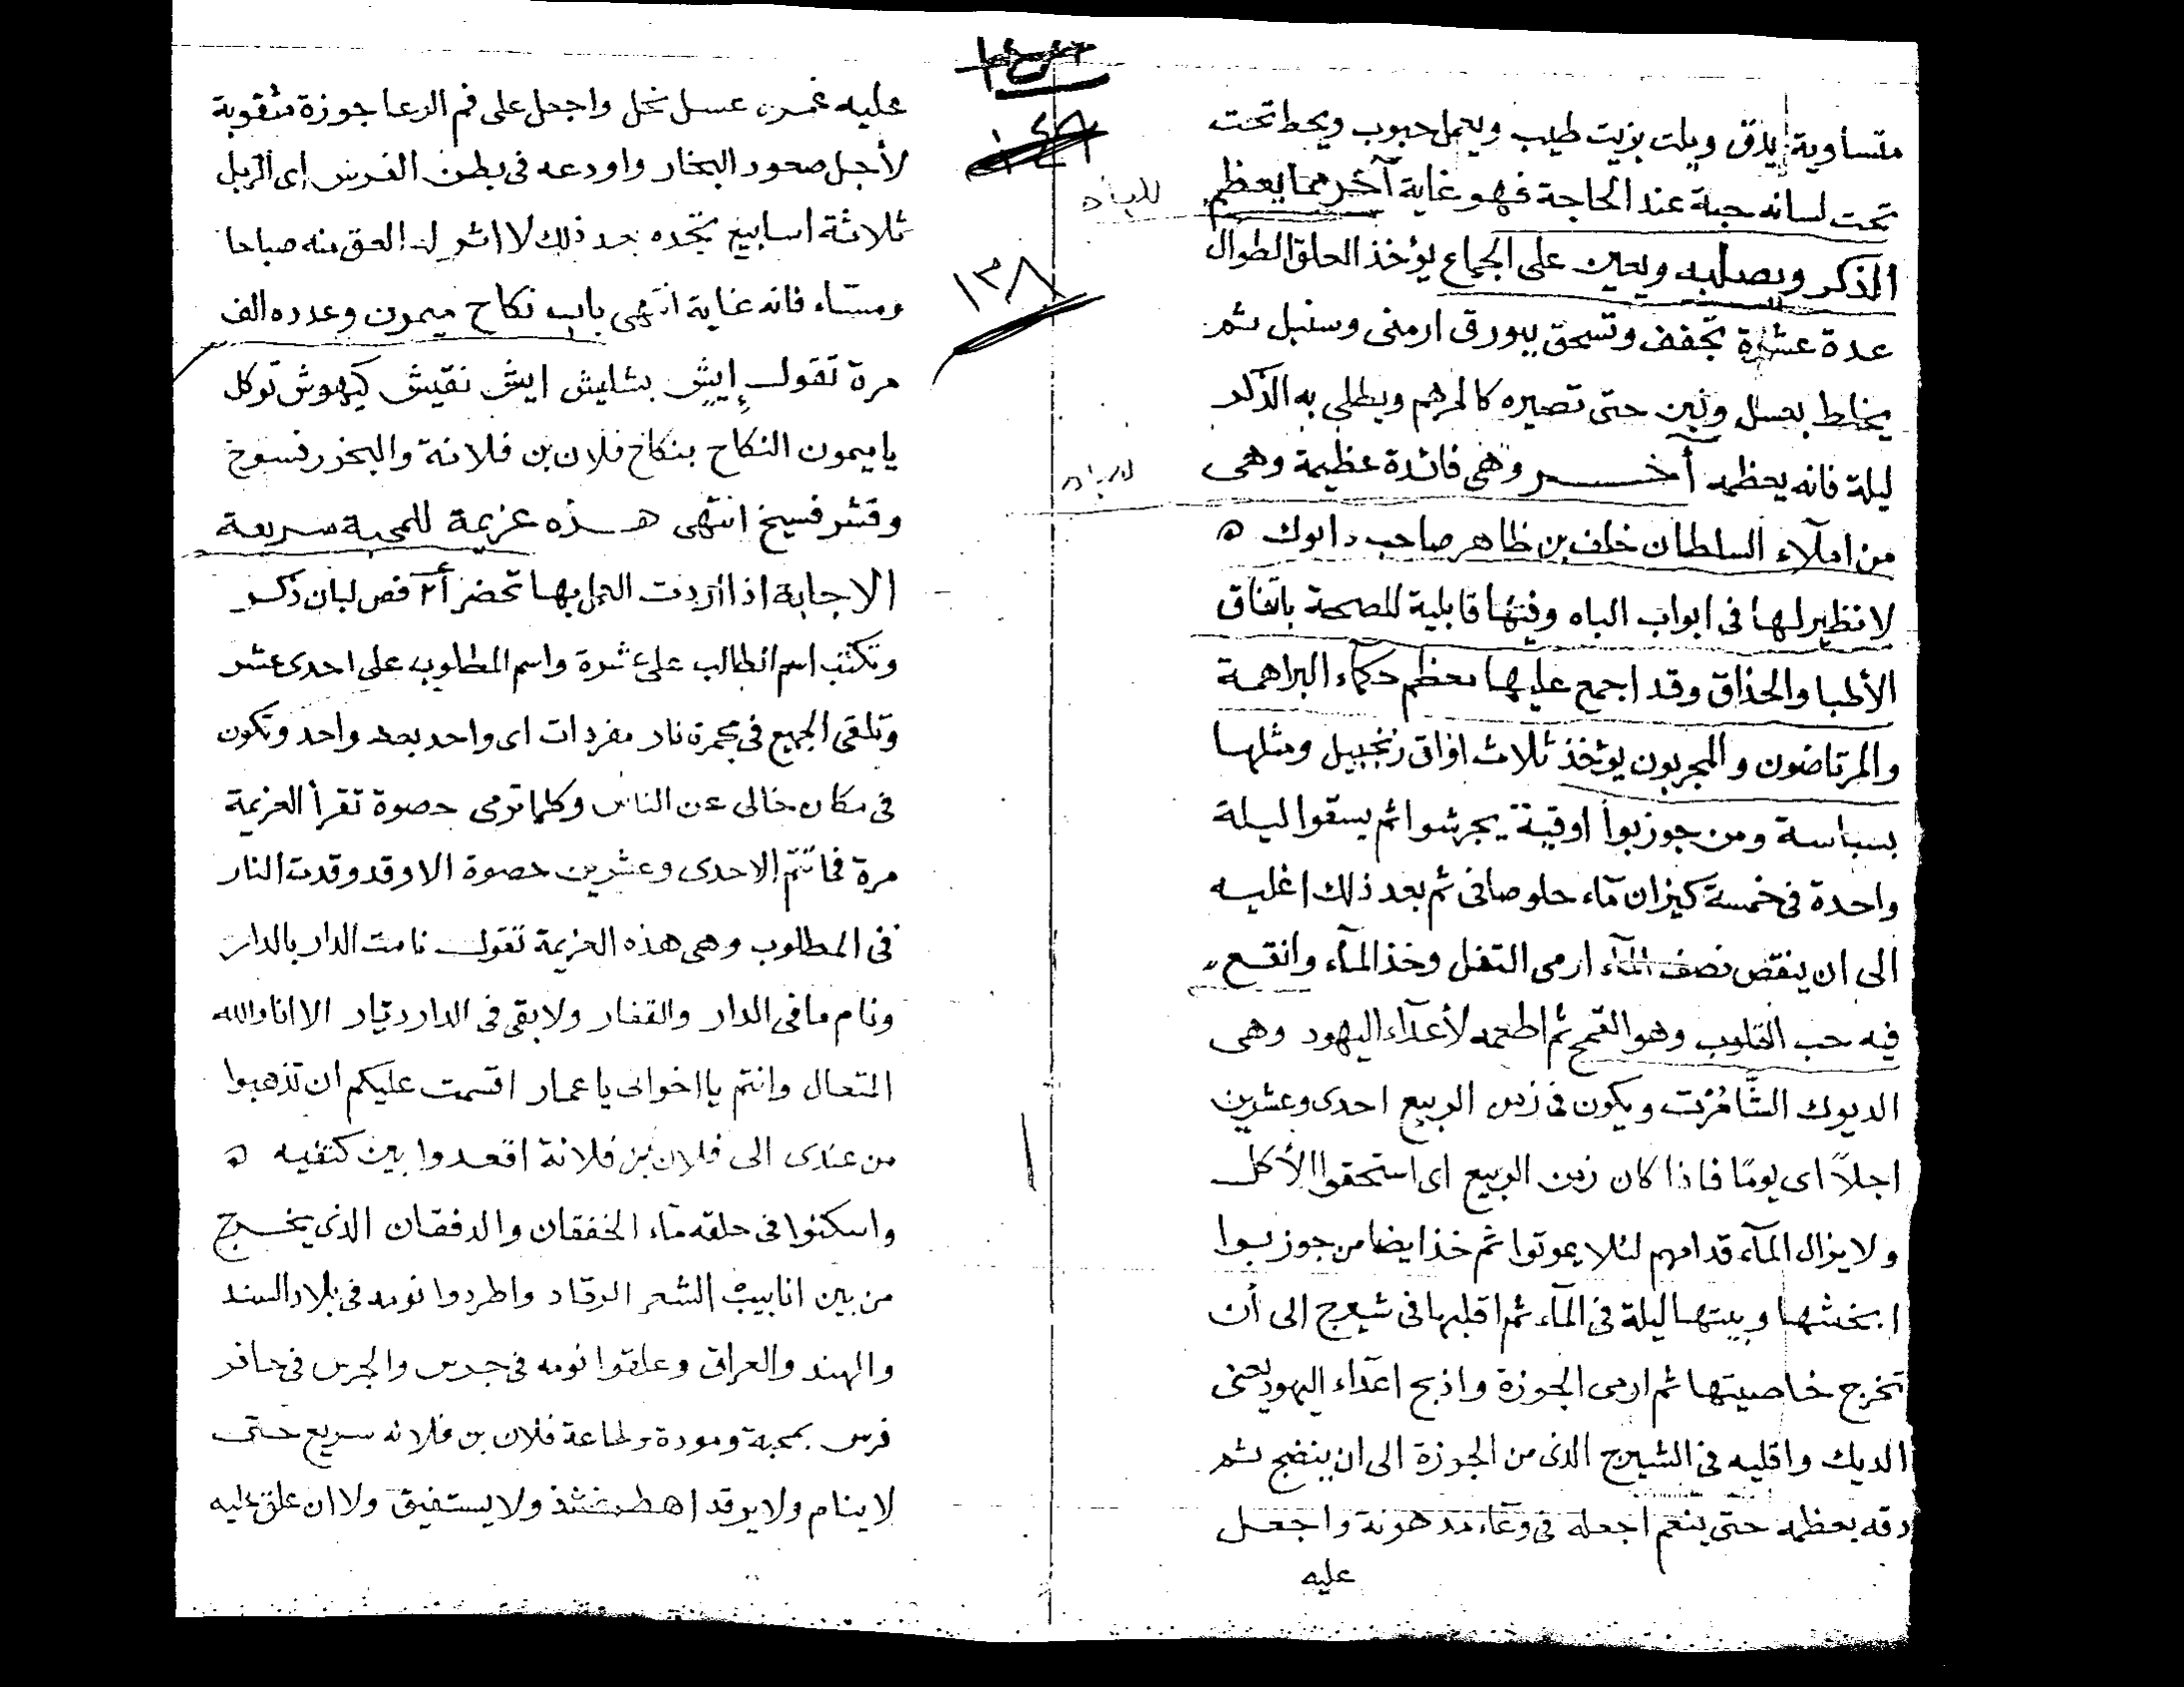 متساوية يدق ويلت بزيت طيب ويعمل حبوب ويحط تحت
تحت لسانه حبة عند الحاجة فهو غاية آخر مما يعظم
للباه
الذكر ويصلبه ويعين على الجماع يؤخذ العلق الطوال
عدة عشرة تجفف وتسحق ببورق ارمنى وسنبل ثم
يخلط بعسل ولبن حتى تصيره كالمرهم ويطلى به الذكر
ليلة فانه يعظمه آخر وهى فائدة عظيمة وهى
للباه
من املآء السلطان خلف بن ظاهر صاحب دابوك ه
لا نظير لها فى ابواب الباه وفيتها قابلية للصحة باتفاق
الأطبا والحذاق وقد اجمع عليها معظم حكماء البراهمة
والمرتاضون والمجربون يؤخذ ثلاث اواق زنجبيل ومثلها
بسباسة ومن جوز بوا اوقية يجرشوا ثم يسقوا ليلة
واحدة فى خمسة كيزان مآء حلو صافى ثم بعد ذلك اغليه
الى ان ينقص نصف المآء ارمى التفل وخذ المآء وانقع
فيه حب القلوب وهو القمح ثم اطعمه لأعدآء اليهود وهى
الديوك ويكون فى زمن الربيع احدى وعشرين
اجلاً اى يومًا فاذا كان زمن الربيع اى استحقوا الأكل
ولا يزال المآء قدامهم لئلا يموتوا ثم خذ ايضا من جوز بوا
ابخشها وبيتها ليلة فى المآء ثم اقليها فى شيرج الى أن
تخرج خاصيتها ثم ارمى الجوزة واذبح اعدآء اليهود يعنى
الديك واقليه فى الشيرج الذى من الجوزة الى ان ينضج ثم
دقه بعظمه حتى ينعم اجعله فى وعآء مدهونة واجعل
عليه
١٣٨
عليه غمره عسل نحل واجعل على فم الوعا جوزة مثقوبة
لأجل صعود البخار واودعه فى بطن الفرس اى الزبل
ثلاثة اسابيع تجده بعد ذلك لا اثر له العق منه صباحا
ومسآء فانه غاية انتهى باب نكاح ميمون وعدده الف
مرة تقول إيش بشليش ايش نقيش كيهوش توكل
يا ميمون النكاح بنكاح فلان بن فلانة والبخور فسوخ
وقشر فسيخ انتهى هذه عزيمة للمحبة سريعة
الاجابة اذا اردت العمل بها تحضر ٢١ فص لبان ذكر
وتكتب اسم الطالب على عشرة واسم المطلوب على احدى عشر
وتلقى الجميع فى مجمرة نار مفردات اى واحد بعد واحد وتكون
فى مكان خالى عن الناس وكلما ترمى حصوة تقرأ العزيمة
مرة فما تتم الاحدى وعشرين حصوة الا وقد وقدت النار
فى المطلوب وهى هذه العزيمة تقول نامت الدار بالدار
ونام ما فى الدار والقفار ولا بقى فى الدار ديّار الا انا والله
المتعال وانتم يا اخوانى يا عمار اقسمت عليكم ان تذهبوا
من عندى الى فلان بن فلانة اقعدوا بين كتفيه ه
واسكنوا فى حلقه مآء الخفقان والدفقان الذى يخرج
من بين انابيب الشعر الرقاد واطردوا نومه فى بلاد السند
والهند والعراق وعلقوا نومه فى جرس والجرس فى حافر
فرس بمحبة ومودة وطاعة فلان بن فلانه سريع حتى
لا ينام ولا يرقد ولا يستفيق ولا ان علق عليه